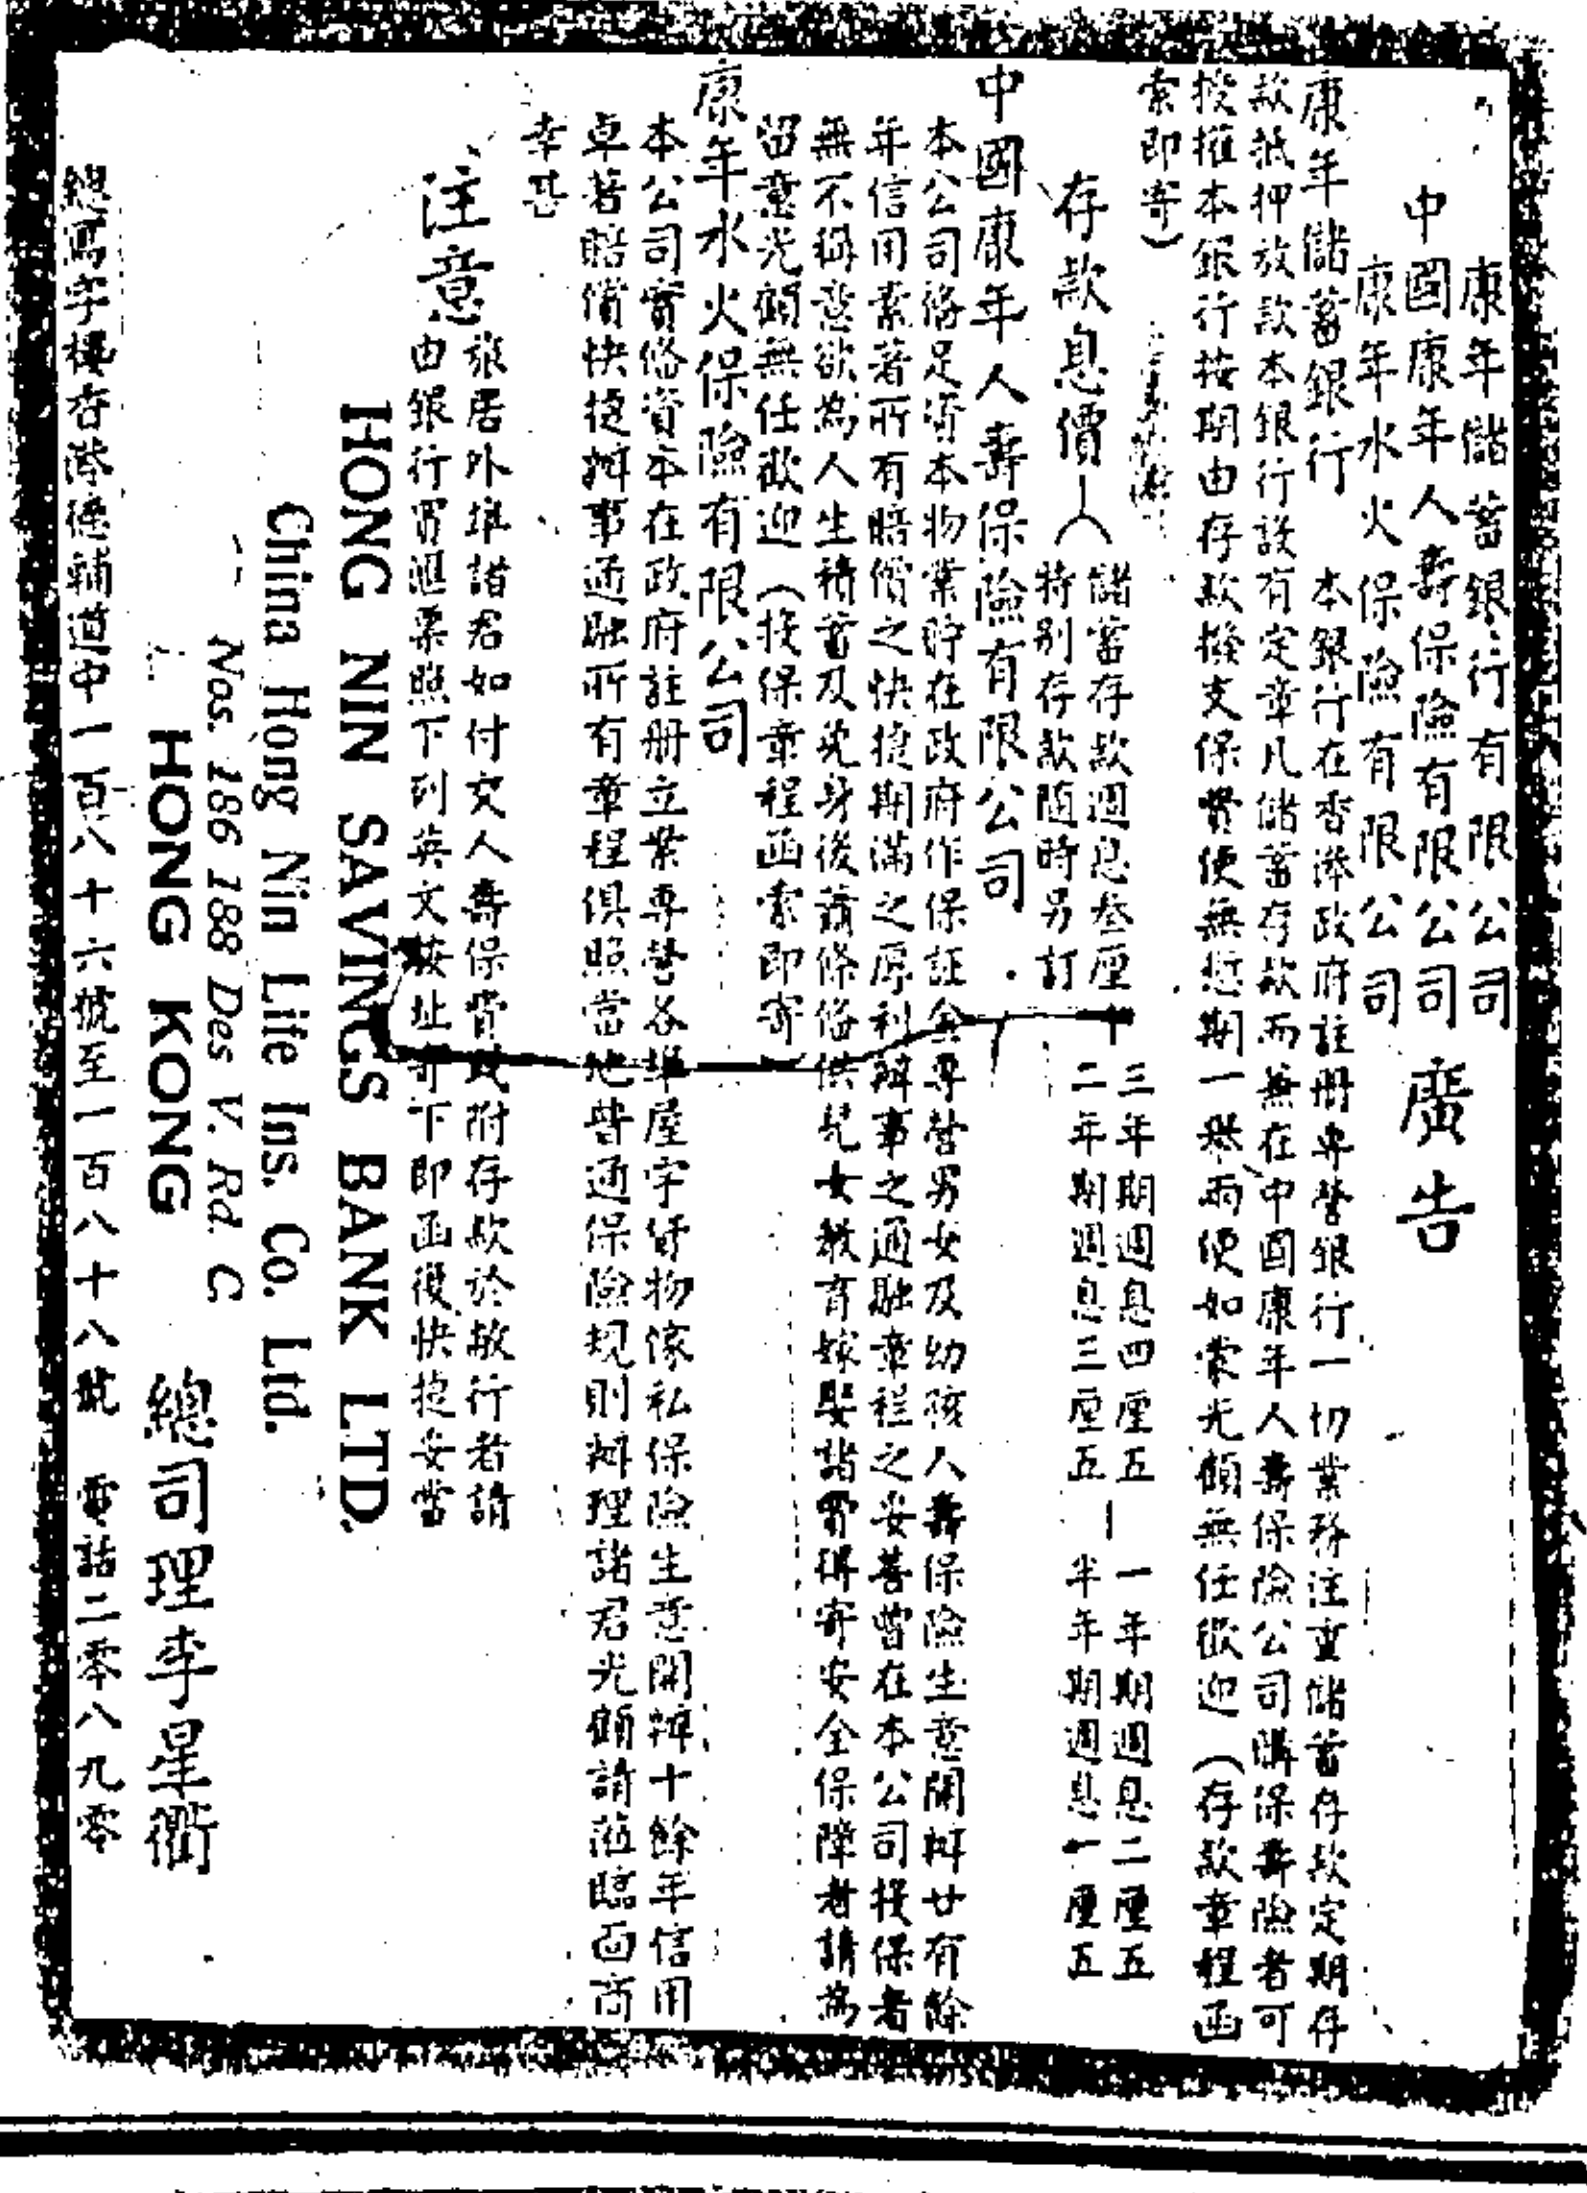 康年儲蓄銀行有限公司
中國康年人壽保險有限公司 廣告
康年水火保險有限公司
康年儲蓄銀行 本銀行在香港政府註冊專營銀行一切業務注重儲蓄存款定期存
款抵押放款本銀行設有定章凡儲蓄存款而兼在中國康年人壽保險公司購保壽險者可
授權本銀行按期由存款撥支保費便無愆期一舉兩便如蒙光顧無任歡迎（存款章程函
索即寄）
存款息價
儲蓄存款週息叁厘
特别存款隨時另訂
三年期週息四厘五
二年期週息三厘五
一年期週息二厘五
半年期週息一厘五
中國康年人壽保險有限公司
本公司俻足資本物業貯在政府作保証金專營男女及幼孩人壽保險生意開辦廿有餘
年信用素著所有賠償之快捷期滿之厚利辦事之通融章程之妥善曾在本公司投保者
無不稱意欲為人生積蓄及免身後蕭條俻供兒女教育嫁娶諸費得安全保障者請為
留意光顧無任歡迎（投保章程函索即寄
康年水火保險有限公司
本公司實俻資本在政府註冊立業專營各埠屋宇貨物傢私保險生意開辦十餘年信用
卓著賠償快捷辦事通融所有章程俱照當地普通保險規則辦理諸君光顧請蒞臨面商
幸甚
注意
旅居外埠諸君如付交人壽保費或附存款於敝行者請
由銀行買滙票照下列英文按址寄下即函復快捷妥當
HONG NIN SAVINGS BANK LTD.
China Hong Nin Life Ins. Co. Ltd.
Nos. 186 188 Des V. Rd. C
HONG KONG 總司理李星衢
總寫字樓香港德輔道中一百八十六號至一百八十八號 電話二零八九零